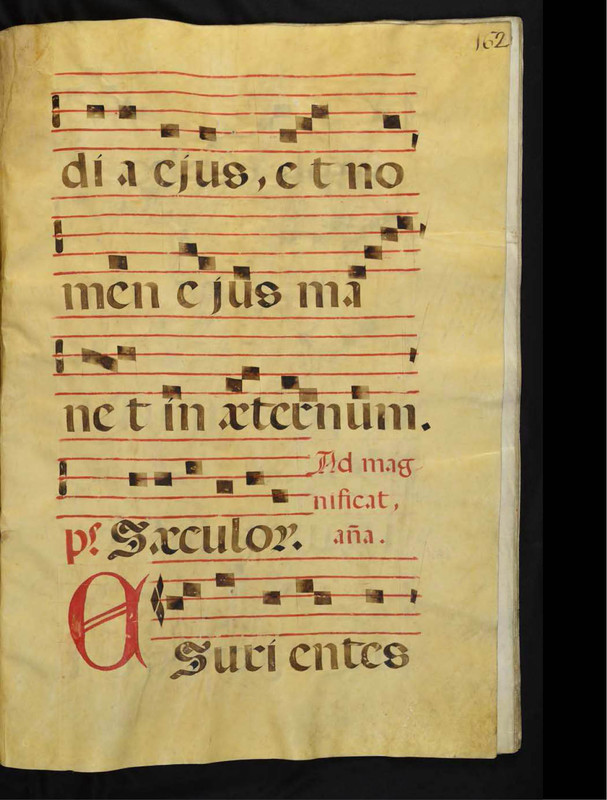 162
di a ejus, et no
men ejus ma
net in æternum.
Ad mag
nificat,
ps. Sæculor. aña.
ESuri entes